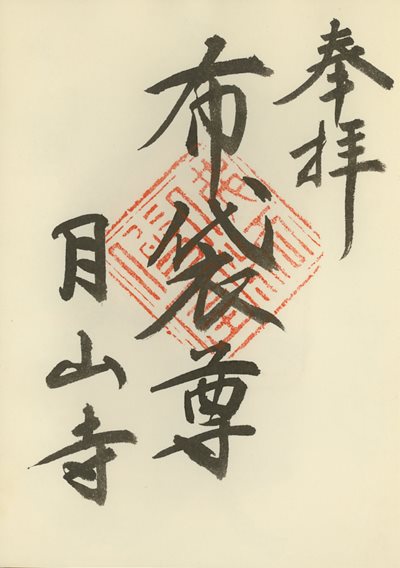 奉拝
布袋尊
月山寺